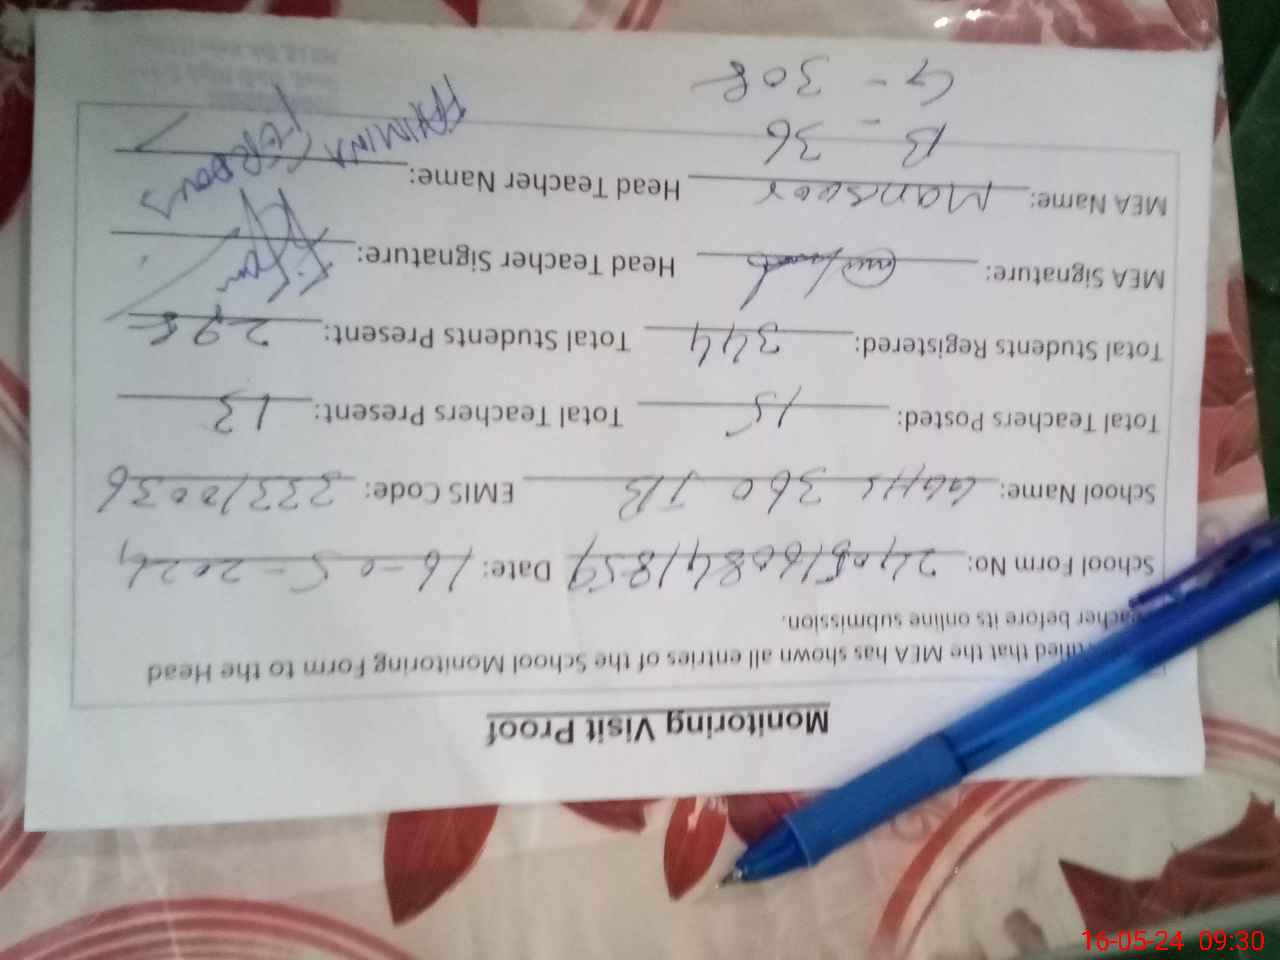 Monitoring Visit Proof
that the MEA has shown all entries of the School Monitoring Form to the Head
Teacher before its online submission.
School Form No: 2405160841859 Date: 16-05-2024
School Name: GGHS 360 JB EMIS Code: 33310036
Total Teachers Posted: 15 Total Teachers Present: 13
Total Students Registered: 344 Total Students Present: 298
MEA Signature: Head Teacher Signature:
MEA Name: Mansoor Head Teacher Name: TAHMINA FERDOUS
B - 36
G - 308
16-05-24 09:30